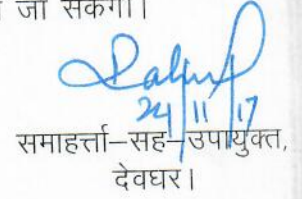 जा सकेगा।
24/11/17
समाहर्त्ता–सह–उपायुक्त,
देवघर।